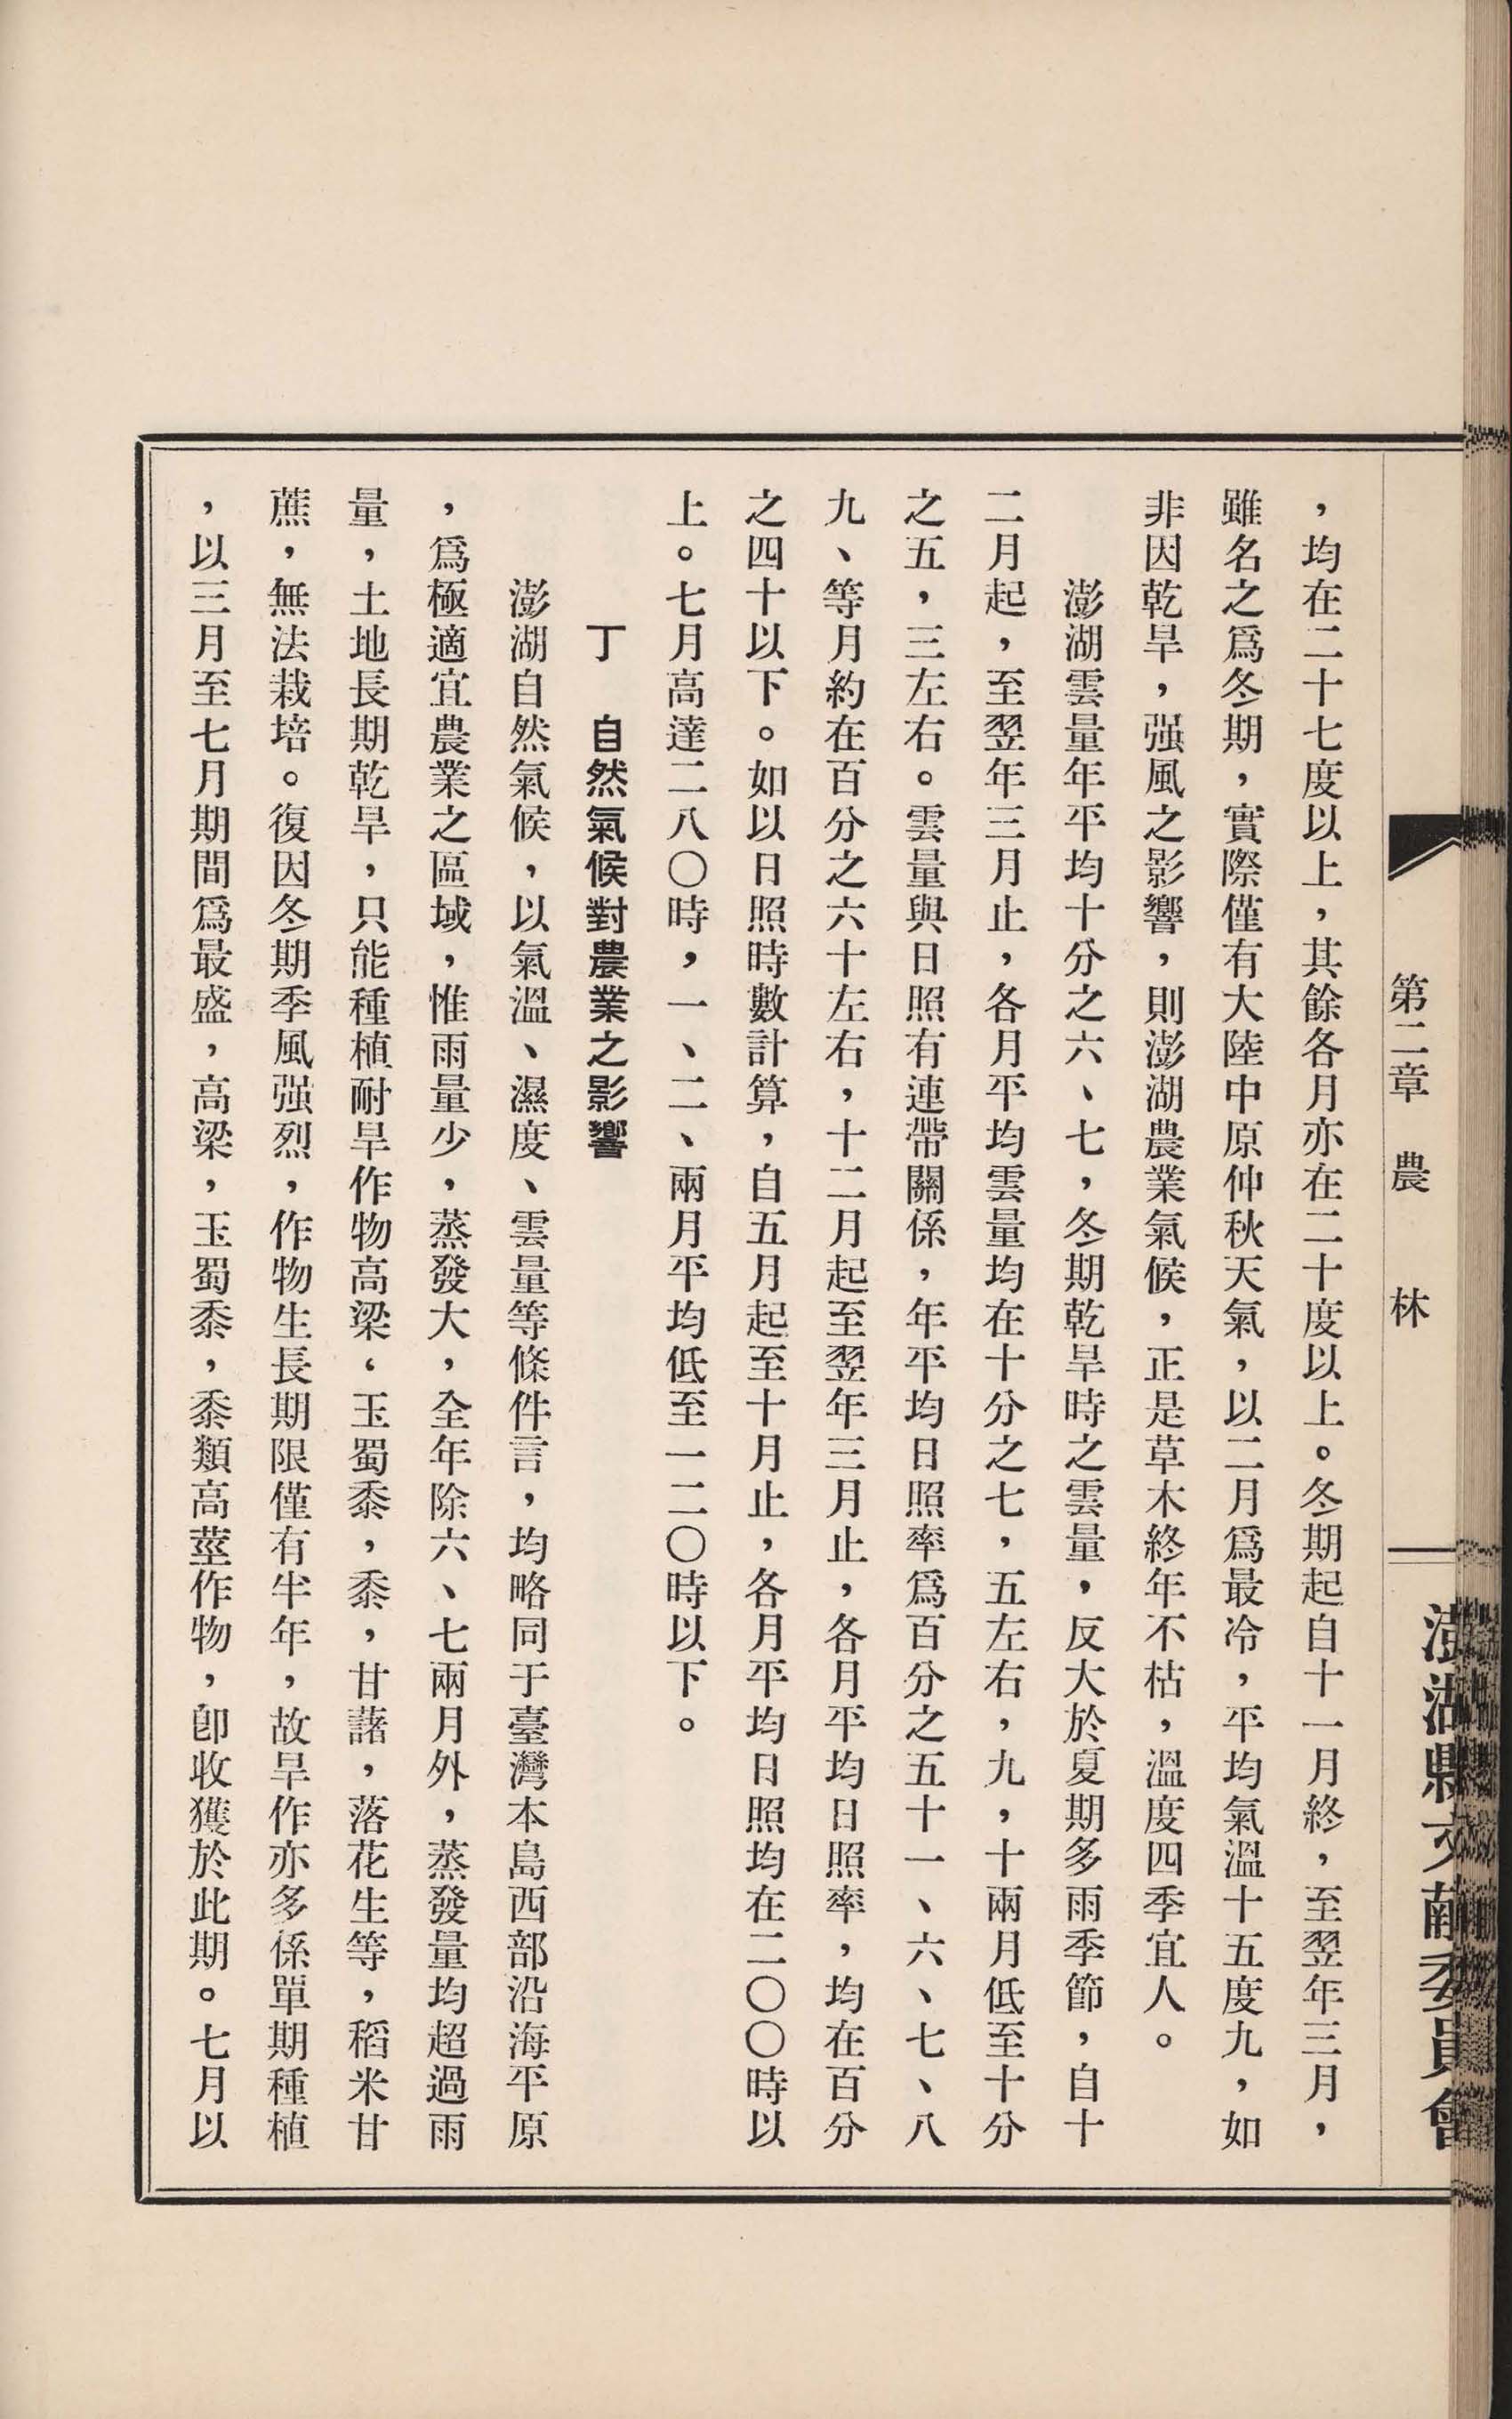 第二章　農　林
澎湖縣文獻委員會
，均在二十七度以上，其餘各月亦在二十度以上。冬期起自十一月終，至翌年三月，
雖名之爲冬期，實際僅有大陸中原仲秋天氣，以二月爲最冷，平均氣溫十五度九，如
非因乾旱，强風之影響，則澎湖農業氣候，正是草木終年不枯，溫度四季宜人。
澎湖雲量年平均十分之六、七，冬期乾旱時之雲量，反大於夏期多雨季節，自十
二月起，至翌年三月止，各月平均雲量均在十分之七，五左右，九，十兩月低至十分
之五，三左右。雲量與日照有連帶關係，年平均日照率爲百分之五十一、六、七、八
九、等月約在百分之六十左右，十二月起至翌年三月止，各月平均日照率，均在百分
之四十以下。如以日照時數計算，自五月起至十月止，各月平均日照均在二〇〇時以
上。七月高達二八〇時，一、二、兩月平均低至一二〇時以下。
丁　自然氣候對農業之影響
澎湖自然氣候，以氣溫、濕度、雲量等條件言，均略同于臺灣本島西部沿海平原
，爲極適宜農業之區域，惟雨量少，蒸發大，全年除六、七兩月外，蒸發量均超過雨
量，土地長期乾旱，只能種植耐旱作物高梁‘玉蜀黍，黍，甘藷，落花生等，稻米甘
蔗，無法栽培。復因冬期季風强烈，作物生長期限僅有半年，故旱作亦多係單期種植
，以三月至七月期間爲最盛，高梁，玉蜀黍，黍類高莖作物，卽收獲於此期。七月以